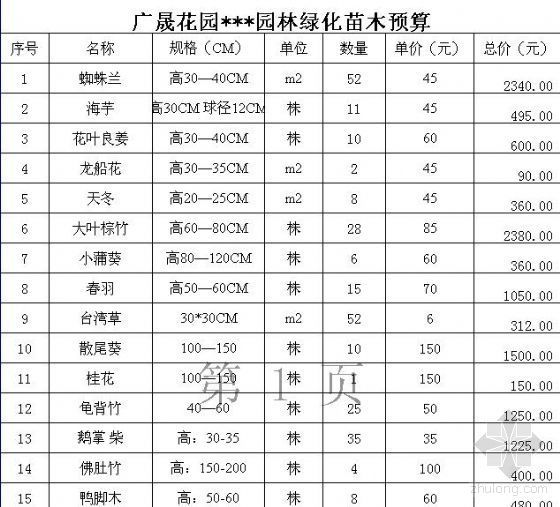 广晟花园***园林绿化苗木预算
序号 名称 规格（CM） 单位 数量 单价（元） 总价（元）
1 蜘蛛兰 高30—40CM m2 52 45 2340.00
2 海芋 高30CM 球径12CM 株 11 45 495.00
3 花叶良姜 高30—40CM 株 10 60 600.00
4 龙船花 高30—35CM m2 2 45 90.00
5 天冬 高20—25CM m2 8 45 360.00
6 大叶棕竹 高60—80CM 株 28 85 2380.00
7 小蒲葵 高80—120CM 株 6 60 360.00
8 春羽 高50—60CM 株 15 70 1050.00
9 台湾草 30*30CM m2 52 6 312.00
10 散尾葵 100—150 株 10 150 1500.00
11 桂花 100—150 株 1 150 150.00
第 1 页
12 龟背竹 40—60 株 25 50 1250.00
13 鹅掌 柴 高：30-35 株 35 35 1225.00
14 佛肚竹 高：150-200 株 4 100 400.00
15 鸭脚木 高：50-60 株 8 60 480.00
zhulong.com